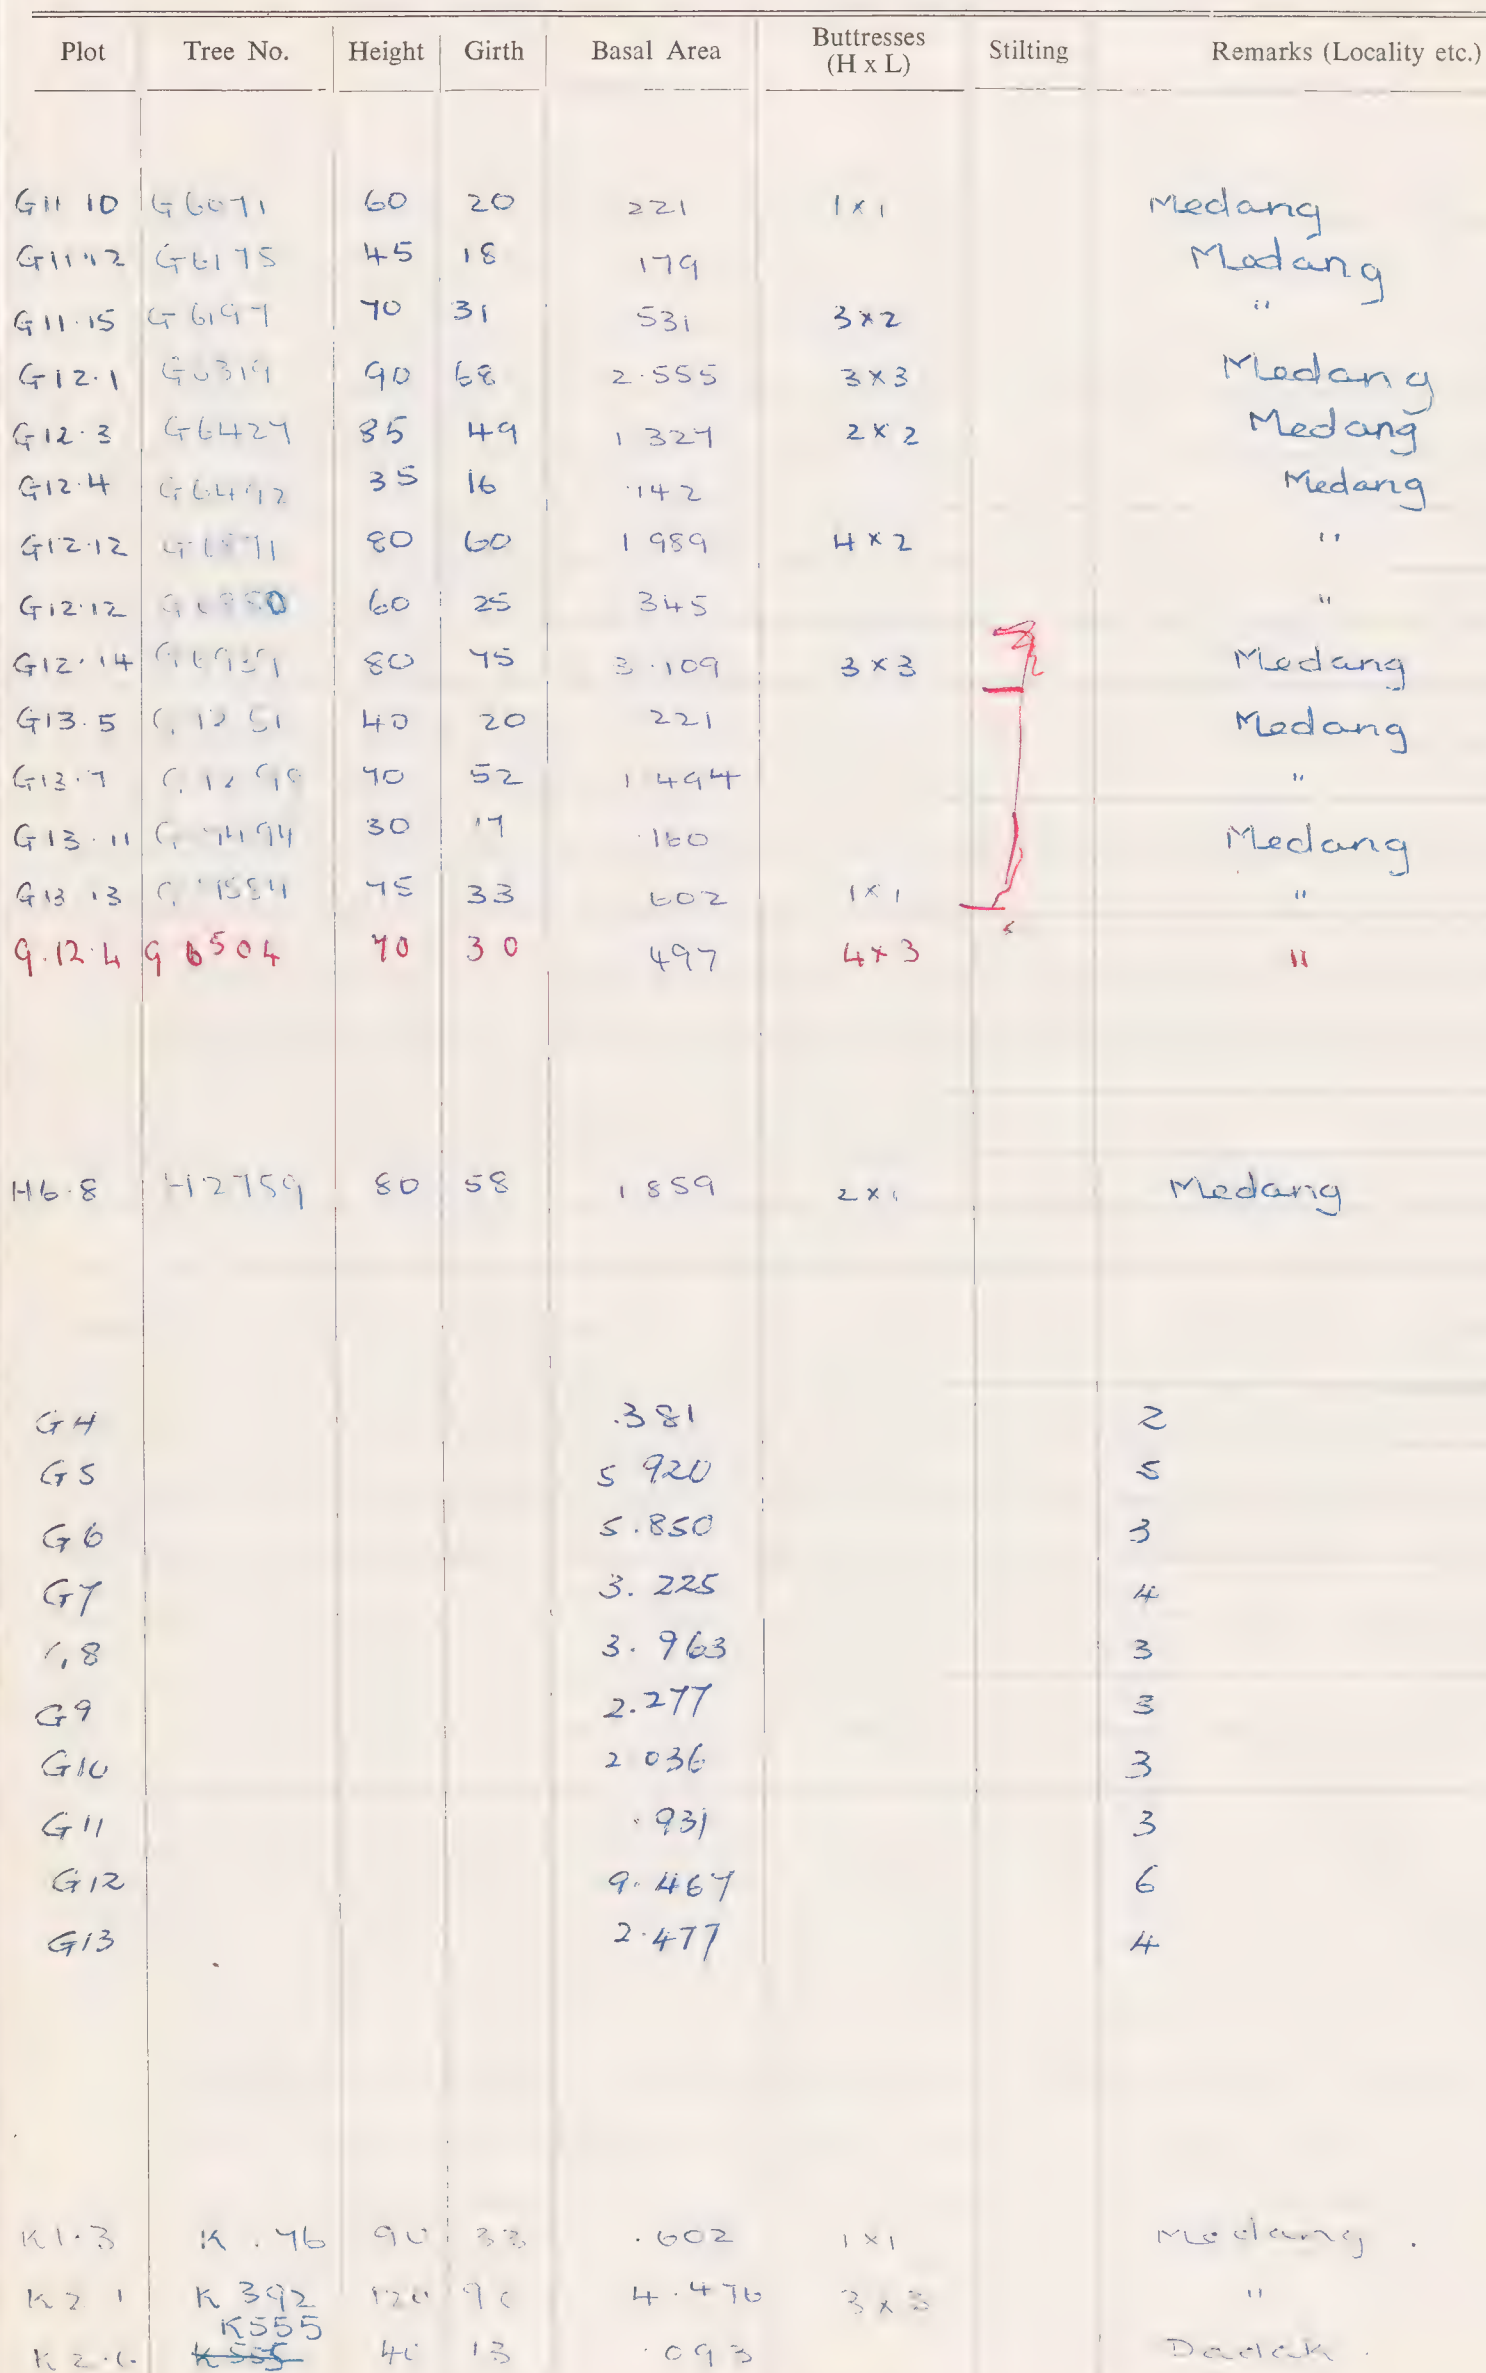 Plot Tree No. Height Girth Basal Area Buttresses (H x L) Stilting Remarks (Locality etc.)
G11 10 G6071 60 20 221 1 x 1 Medang
G11.12 G6175 45 18 179 Medang
G11.15 G6197 70 31 531 3 x 2 "
G12.1 G6319 90 68 2.555 3 x 3 Medang
G12.3 G6427 85 49 1 327 2 x 2 Medang
G12.4 G6492 35 16 .142 Medang
G12.12 80 60 1 989 4 x 2 "
G12.12 60 25 345 "
G12.14 80 75 3.109 3 x 3 Medang
G13.5 40 20 221 Medang
G13.7 70 52 1 494 "
G13.11 30 17 .160 Medang
G13.13 75 33 602 1 x 1 "
G.12.4 G6504 70 30 497 4 x 3 "
H6.8 H2759 80 58 1 859 2 x 1 Medang
G4 .381 2
G5 5 920 5
G6 5.850 3
G7 3.225 4
G8 3.963 3
G9 2.277 3
G10 2 036 3
G11 .931 3
G12 9.467 6
G13 2.477 4
K1.3 K.76 90 33 .602 1 x 1 Medang.
K2 1 K392 120 90 4.476 3 x 3 "
K555
K2.6. K555 40 13 .093 Dadak.